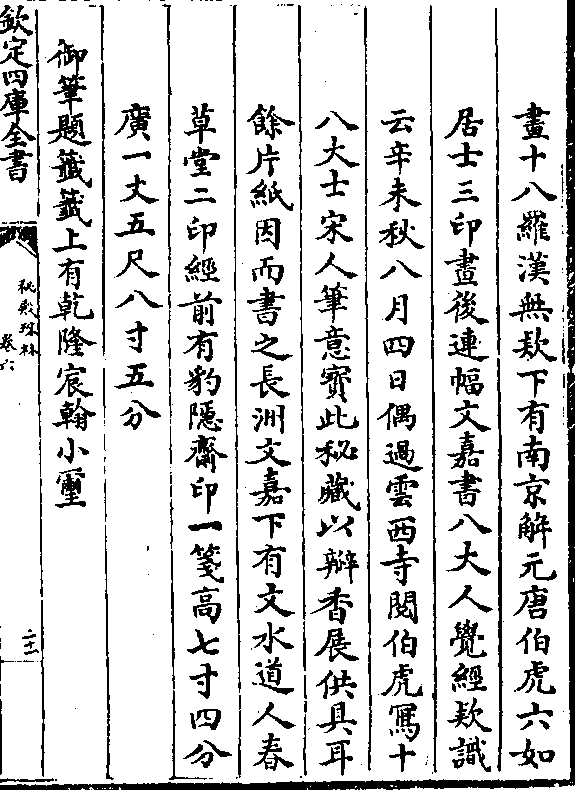 畫十八羅漢無款下有南京解元唐伯虎六如
居士三印畫後連幅文嘉書八大人覺經款識
云辛未秋八月四日偶過雲西寺閱伯虎寫十
八大士宋人筆意寳此秘藏以瓣香展供具耳
餘片紙因而書之長洲文嘉下有文水道人春
草堂二印經前有豹隱齋印一箋高七寸四分
廣一丈五尺八寸五分
御筆題籤籤上有乾隆宸翰小璽
欽定四庫全書
秘殿珠林
卷六
二十一